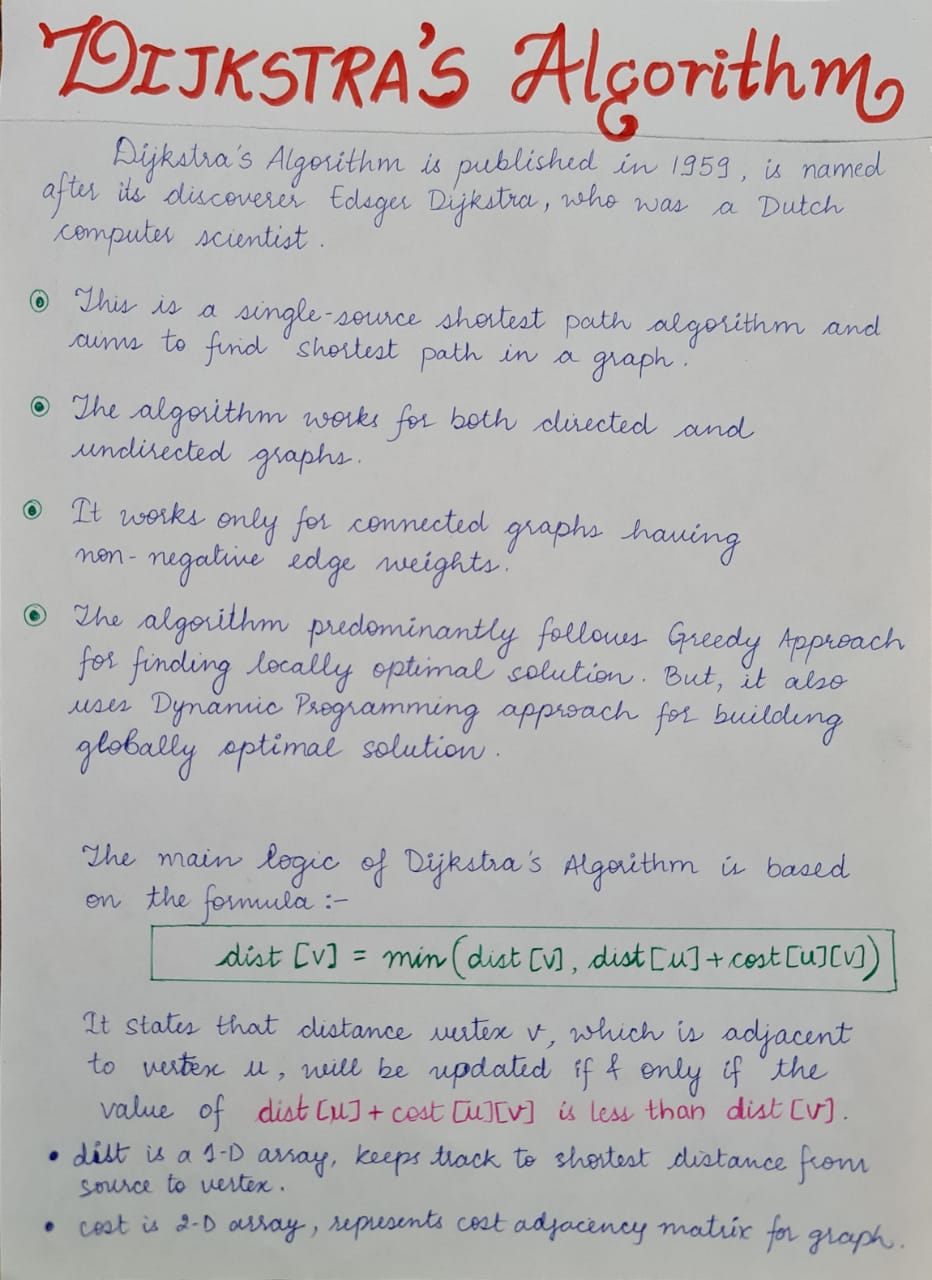 DIJKSTRA'S Algorithm
Dijkstra's Algorithm is published in 1959, is named
after its discoverer Edsger Dijkstra, who was a Dutch
computer scientist.
This is a single-source shortest path algorithm and
aims to find shortest path in a graph.
The algorithm works for both directed and
undirected graphs.
It works only for connected graphs having
non-negative edge weights.
The algorithm predominantly follows Greedy Approach
for finding locally optimal solution. But, it also
uses Dynamic Programming approach for building
globally optimal solution.
The main logic of Dijkstra's Algorithm is based
on the formula :-
dist [v] = min (dist [v], dist [u] + cost [u][v])
It states that distance vertex v, which is adjacent
to vertex u, will be updated if & only if the
value of dist [u] + cost [u][v] is less than dist [v].
• dist is a 1-D array, keeps track to shortest distance from
source to vertex.
• cost is 2-D array, represents cost adjacency matrix for graph.